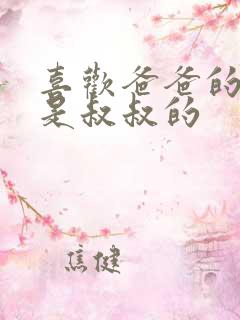 喜歡爸爸的
是叔叔的
焦健